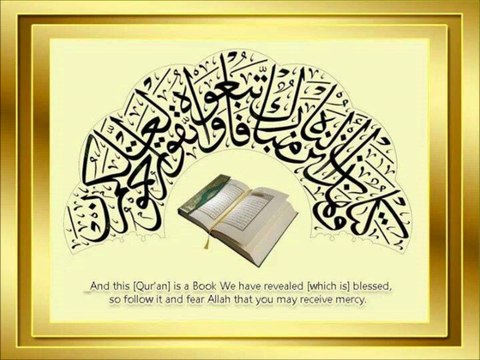 وهذا كتاب أنزلناه مبارك فاتبعوه واتقوا لعلكم ترحمون
And this [Qur'an] is a Book We have revealed [which is] blessed,
so follow it and fear Allah that you may receive mercy.